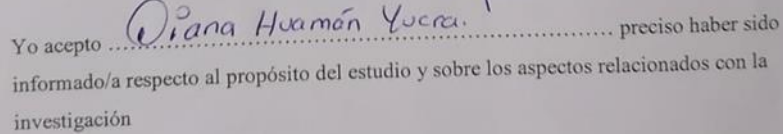 Yo acepto Diana Huamán Yucra. preciso haber sido
informado/a respecto al propósito del estudio y sobre los aspectos relacionados con la
investigación